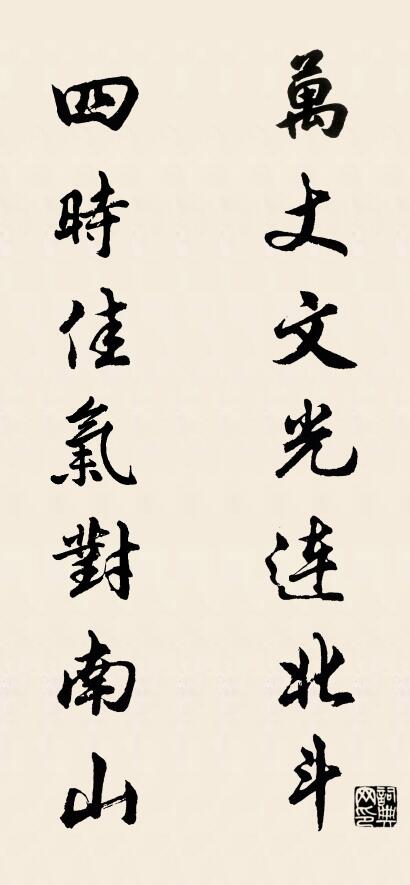 萬丈文光連北斗
四時佳氣對南山
詞典网印